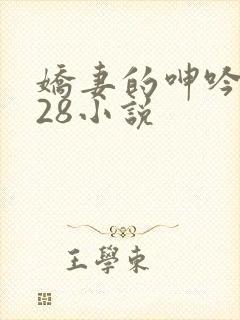 嬌妻的呻吟
28小説
王學東